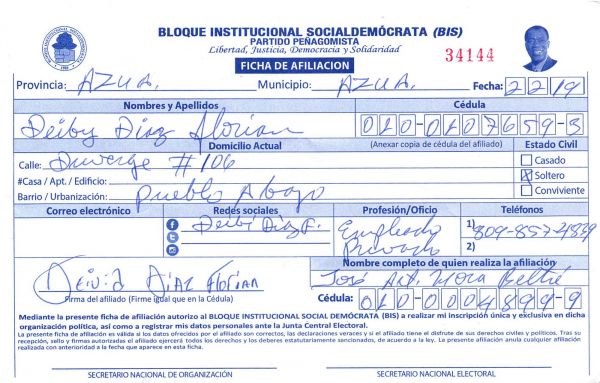 BLOQUE INSTITUCIONAL SOCIALDEMÓCRATA (BIS)
PARTIDO PEÑAGOMISTA
Libertad, Justicia, Democracia y Solidaridad
34144
FICHA DE AFILIACION
Provincia: AZUA. Municipio: AZUA. Fecha: 2 2 19
Nombres y Apellidos Cédula
Deiby Diaz Florian 010-0107659-3
Domicilio Actual (Anexar copia de cédula del afiliado) Estado Civil
Calle: Duverge #106 Casado
#Casa / Apt. / Edificio: X Soltero
Barrio / Urbanización: Pueblo Abajo Conviviente
Correo electrónico Redes sociales Profesión/Oficio Teléfonos
Deibi Diaz F. Empleado 1) 809-857-4839
Privado 2)
Nombre completo de quien realiza la afiliación
Deivid Diaz Florian José Alt. Mora Beltré
Firma del afiliado (Firme igual que en la Cédula) Cédula: 010-0004899-9
Mediante la presente ficha de afiliación autorizo al BLOQUE INSTITUCIONAL SOCIAL DEMÓCRATA (BIS) a realizar mi inscripción única y exclusiva en dicha
organización política, así como a registrar mis datos personales ante la Junta Central Electoral.
La presente ficha de afiliación es válida si los datos ofrecidos por el afiliado son correctos, las declaraciones veraces y si el afiliado tiene el disfrute de sus derechos civiles y políticos. Tras su
recepción, sello y firmas autorizadas el afiliado ejercerá todos los derechos y los deberes estatutariamente sancionados, de acuerdo a la ley. La presente afiliación anula cualquier afiliación
realizada con anterioridad a la fecha que aparece en esta ficha.
SECRETARIO NACIONAL DE ORGANIZACIÓN SECRETARIO NACIONAL ELECTORAL